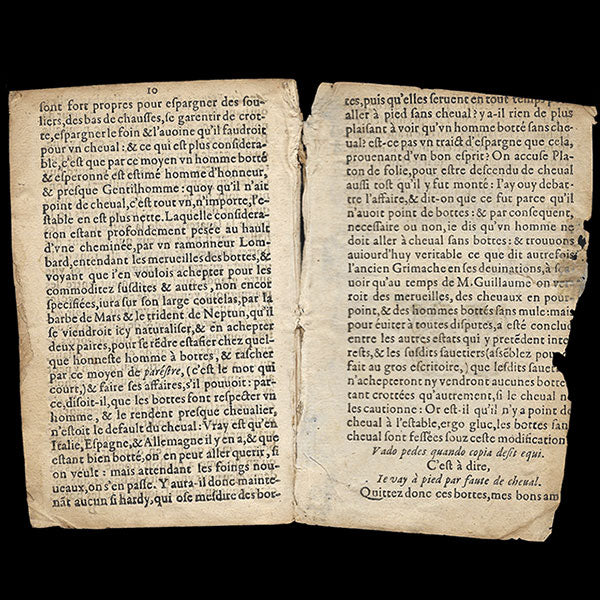 10
sont fort propres pour espargner des sou-
liers, des bas de chausses, se garentir de crot-
te, espargner le foin & l'auoine qu'il faudroit
pour vn cheual : & ce qui est plus considera-
ble, c'est que par ce moyen vn homme botté
& esperonné est estimé homme d'honneur,
& presque Gentilhomme : quoy qu'il n'ait
point de cheual, c'est tout vn, n'importe, l'e-
stable en est plus nette. Laquelle considera-
tion estant profondement pesée au hault
d'vne cheminée, par vn ramonneur Lom-
bard, entendant les merueilles des bottes, &
voyant que i'en voulois achepter pour les
commoditez susdites & autres, non encor
specifiées, iura sur son large coutelas, par la
barbe de Mars & le trident de Neptun, qu'il
se viendroit icy naturaliser, & en achepter
deux paires, pour se rédre estafier chez quel-
que honneste homme à bottes, & tascher
par ce moyen de paréstre, (c'est le mot qui
court,) & faire ses affaires, s'il pouuoit : par-
ce, disoit-il, que les bottes font respecter vn
homme, & le rendent presque cheualier,
n'estoit le default du cheual : Vray est qu'en
Italie, Espagne, & Allemagne il y en a, & que
estant bien botté, on en peut aller querir, si
on veult : mais attendant les foings nou-
ueaux, on s'en passe. Y aura-il donc mainte-
nāt aucun si hardy, qui ose mesdire des bot-
tes, puis qu'elles seruent en tout temps
aller à pied sans cheual ? y a-il rien de plus
plaisant à voir qu'vn homme botté sans che-
ual ? est-ce pas vn traict d'espargne que cela,
prouenant d'vn bon esprit ? On accuse Pla-
ton de folie, pour estre descendu de cheual
aussi tost qu'il y fut monté : I'ay ouy debat-
tre l'affaire, & dit-on que ce fut parce qu'il
n'auoit point de bottes : & par consequent,
necessaire ou non, ie dis qu'vn homme ne
doit aller à cheual sans bottes : & trouuons
auiourd'huy veritable ce que dit autrefois
l'ancien Grimache en ses deuinations, à sça-
uoir qu'au temps de M. Guillaume on ver
roit des merueilles, des cheuaux en pour-
point, & des hommes bottés sans mule : mais
pour éuiter à toutes disputes, a esté conclud
entre les autres estats qui y pretēdent inte
rests, & les susdits sauetiers (assēblez pour
fait au gros escritoire,) que lesdits sauetiers
n'achepteront ny vendront aucunes bottes
tant crottées qu'autrement, si le cheual n
les cautionne : Or est-il qu'il n'y a point de
cheual à l'estable, ergo gluc, les bottes sans
cheual sont fessées souz ceste modification
Vado pedes quando copia desit equi.
C'est à dire,
Ie vay à pied par faute de cheual.
Quittez donc ces bottes, mes bons am